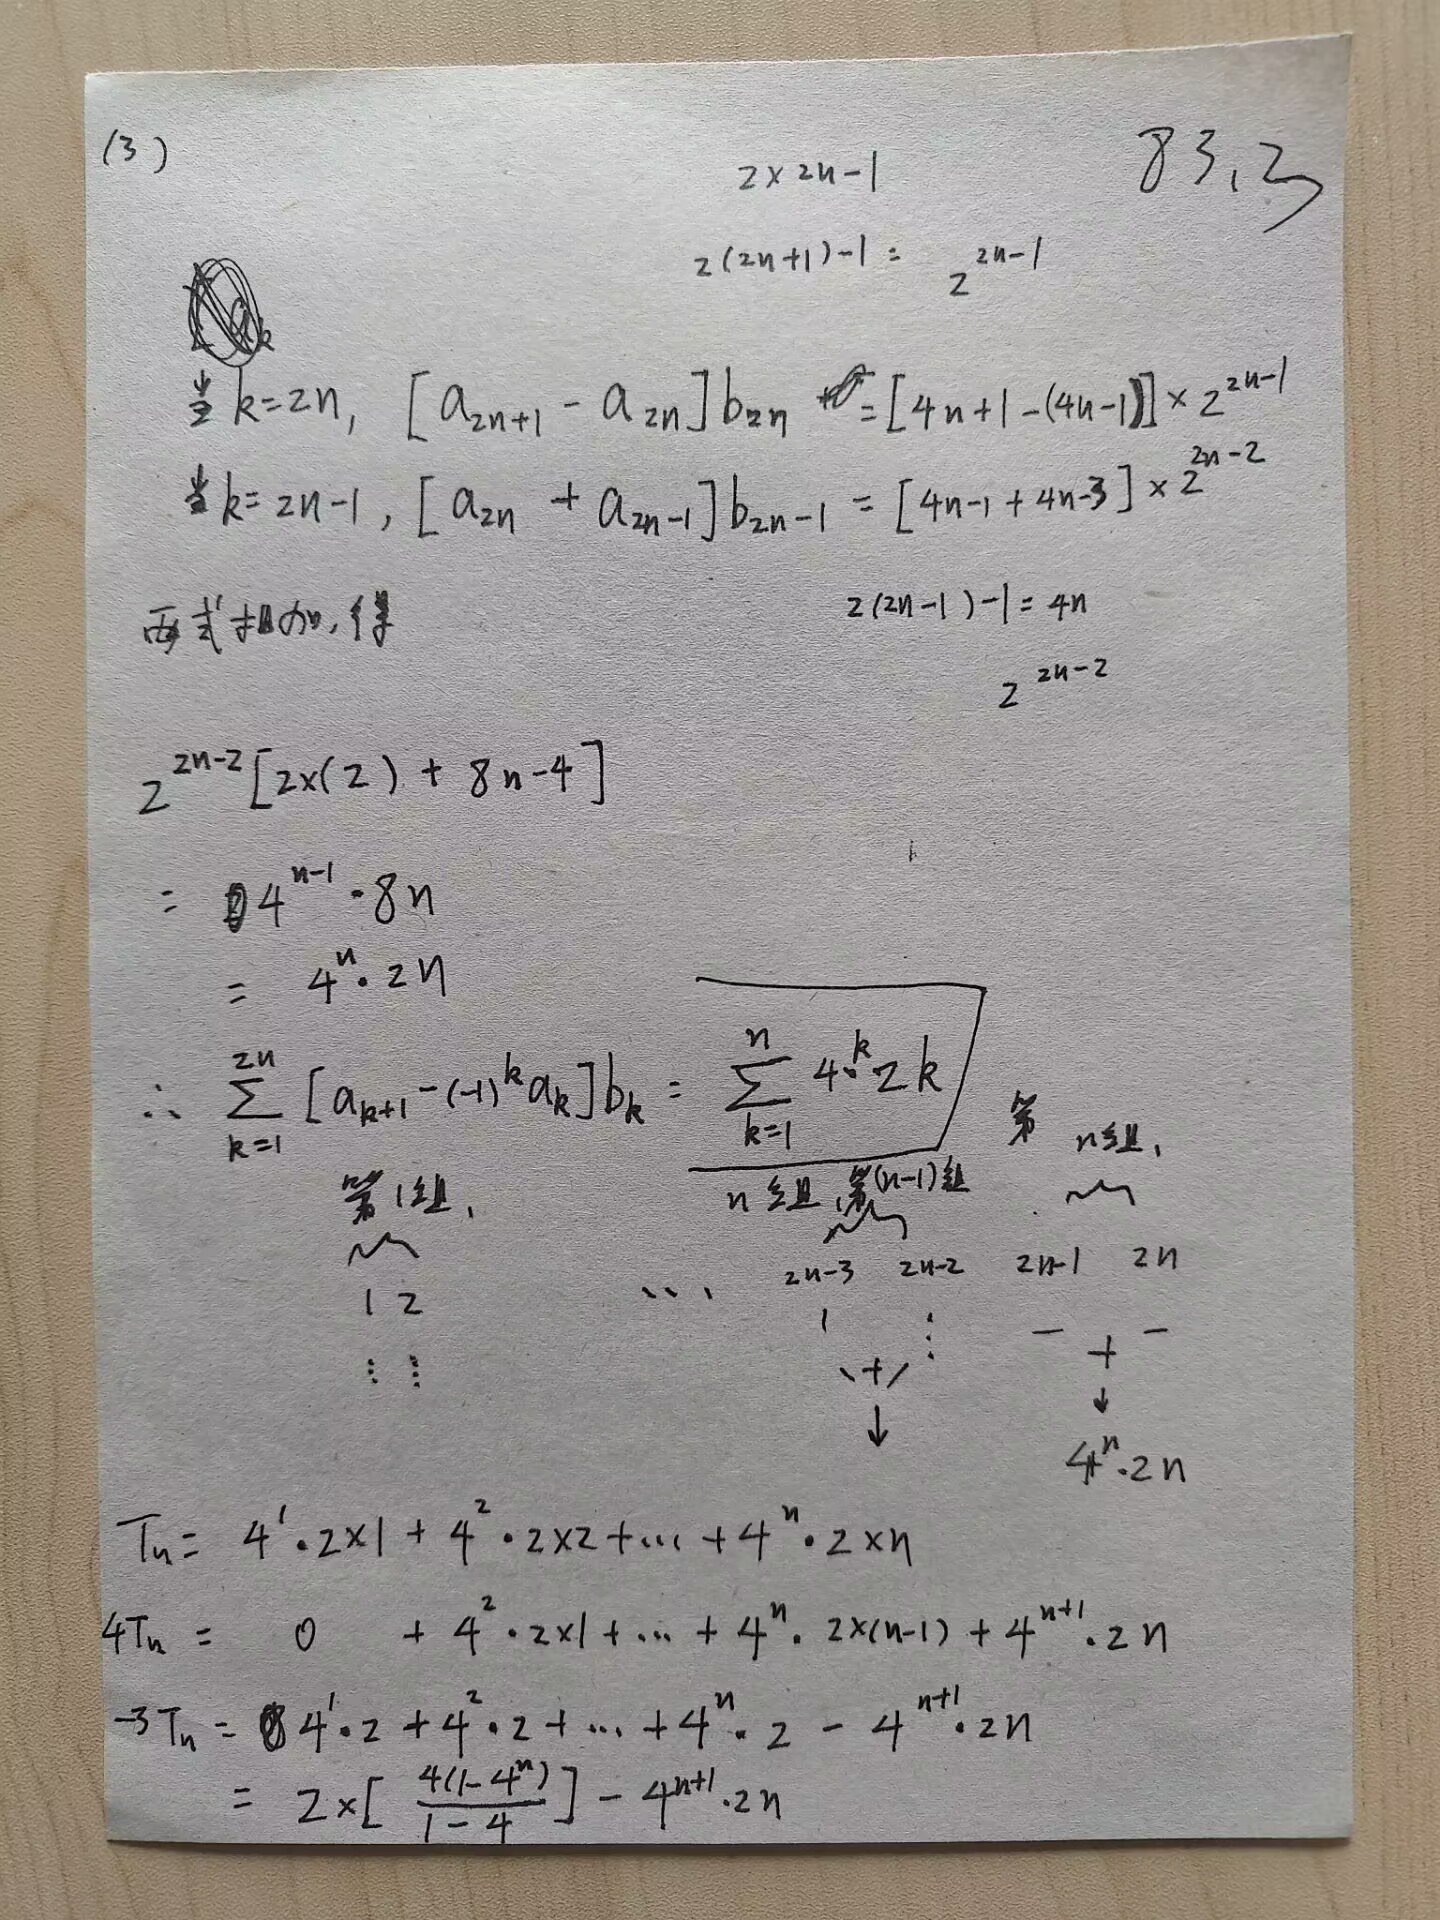 (3)
83.3
2×2n-1
2(2n+1)-1= 2^{2n-1}
当k=2n, [a_{2n+1} - a_{2n}]b_{2n} = [4n+1-(4n-1)]×2^{2n-1}
当k=2n-1, [a_{2n} + a_{2n-1}]b_{2n-1} = [4n-1+4n-3]×2^{2n-2}
两式相加,得
2(2n-1)-1=4n
2^{2n-2}
2^{2n-2}[2×(2)+8n-4]
= 4^{n-1}·8n
= 4^n·2n
∴ \sum_{k=1}^{2n} [a_{k+1}-(-1)^k a_k]b_k = \sum_{k=1}^{n} 4^k·2k
第1组, n组,第(n-1)组 第n组,
1 2 … 2n-3 2n-2 2n-1 2n
⋮ ⋮ + +
↓ ↓
4^n·2n
T_n = 4^1·2×1+4^2·2×2+…+4^n·2×n
4T_n = 0 + 4^2·2×1+…+4^n·2×(n-1)+4^{n+1}·2n
-3T_n = 4^1·2+4^2·2+…+4^n·2-4^{n+1}·2n
= 2×[\frac{4(1-4^n)}{1-4}]-4^{n+1}·2n